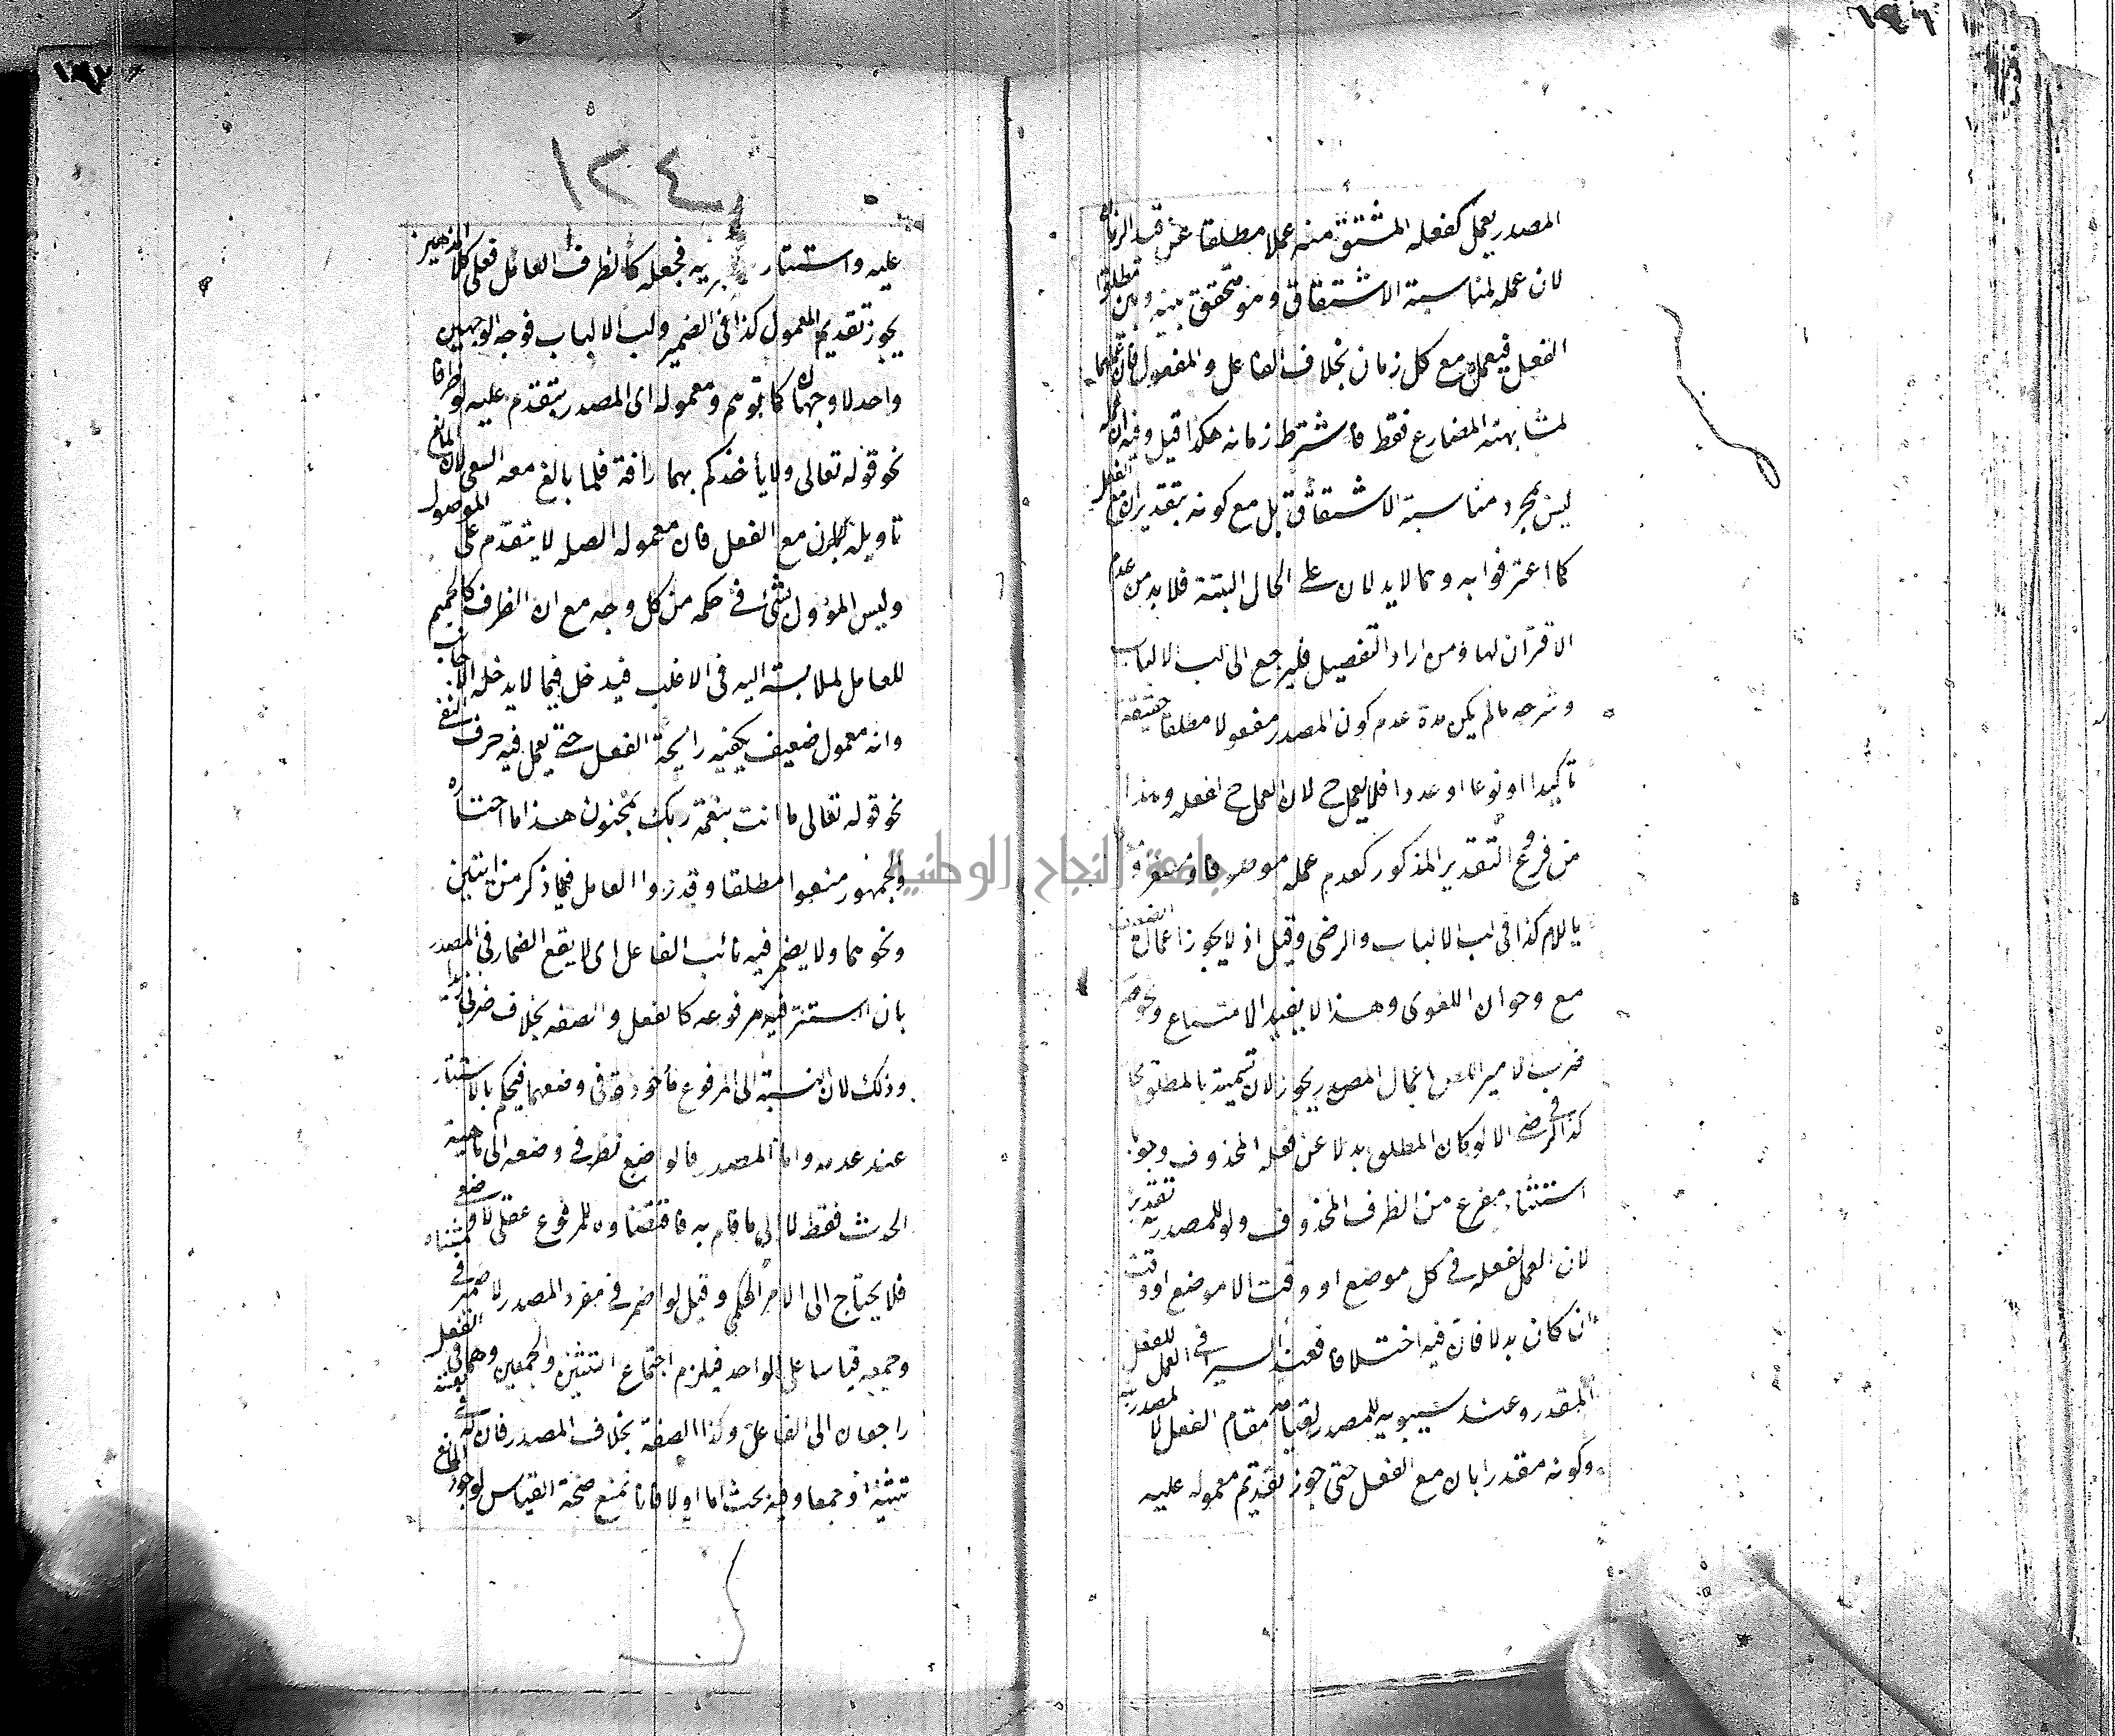 ١٩٦
المصدر يعمل كفعله المشتق منه عملا مطلقا عن قيد الزمان
لان عمله لمناسبة الاشتقاق وهو متحقق بينه وبين مطلق
الفعل فيعمل مع كل زمان بخلاف الفاعل والمفعول فان عملهما
لمشابهته المضارع فقط فاشترط زمانه هكذا قيل وفيه ان عمله
ليس بمجرد مناسبة الاشتقاق بل مع كونه بتقدير ان مع الفعل
كما اعترفوا به وهما لا يدلان على الحال البتة فلا بد من عدم
الاقتران لها ومن اراد التفصيل فليرجع الى لب الالباب
وشرحه ما لم يكن مدة عدم كون المصدر مفعولا مطلقا حقيقة
تأكيدا او نوعا او عددا فلا يعمل ح لان العمل ح لفعله وهذا
من فروع التقدير المذكور كعدم عمله موصوفا
باللام كذا في لب الالباب والرضى وقيل اذ لا يجوز اعمال الضعيف
مع وجدان القوى وهذا لا يفيد الامتناع ونحو ضرب
ضرب الامير اللص اعمال المصدر يجوز لان تسمية بالمطلق
كذا في الرضى الا لو كان المطلق بدلا عن فعله المحذوف وجوبا
استثناء مفرغ من الظرف المحذوف ولو للمصدرية تقدير
لان العمل لفعله في كل موضع او وقت الا موضع او وقت
ان كان بدلا فان فيه اختلافا فعند السيرافي العمل للفعل
المقدر وعند سيبويه للمصدر لقيامه مقام الفعل لا لمصدريته
وكونه مقدرا بان مع الفعل حتى جوز تقديم معموله عليه
١٩٧
١٢٤
عليه واستتار فيه فجعله كالظرف العامل فعلى كلا المذهبين
يجوز تقديم المعمول كذا في الضمير ولب الالباب فوجه الوجهين
واحد لا وجهان كما توهم ومعموله اى المصدر يتقدم عليه لو ظرفا
نحو قوله تعالى ولا يأخذكم بهما رأفة فلما بالغ معه السعى لان المانع
تأويله بان مع الفعل فان معمول الصلة لا يتقدم على الموصول
وليس المؤول بشئ في حكمه من كل وجه مع ان الظرف كالحميم
للعامل لملابسته اليه في الاغلب فيدخل فيما لا يدخله الاجانب
وانه معمول ضعيف يكفيه رايحة الفعل حتى يعمل فيه حرف النفي
نحو قوله تعالى ما انت بنعمة ربك بمجنون هذا ما اختاره
والجمهور منعوا مطلقا وقدروا العامل فيما ذكر من ايتين
ونحوهما ولا يضمر فيه نائب الفاعل اى لا يقع اضمار في المصدر
بان استتر فيه مرفوعه كالفعل والصفة بخلاف ضربي زيدا
وذلك لان النسبة الى المرفوع مأخوذة في وضعهما فيحكم بالاستتار
عند عدمه واما المصدر فالواضع نظر في وضعه الى ماهية
الحدث فقط لا الى ما قام به فاقتضاؤه للمرفوع عقلي لا وضعي
فلا يحتاج الى الامر الحكمي وقيل لو اضمر في مفرد المصدر لاضمر في مثناه
وجمعه قياسا على الواحد فيلزم اجتماع التثنيتين والجمعين وهما في الفعل
راجعان الى الفاعل وكذا الصفة بخلاف المصدر فان له في نفسه
تثنية وجمعا وفيه بحث اما اولا فانا نمنع صحة القياس لوجود المانع
جامعة النجاح الوطنية